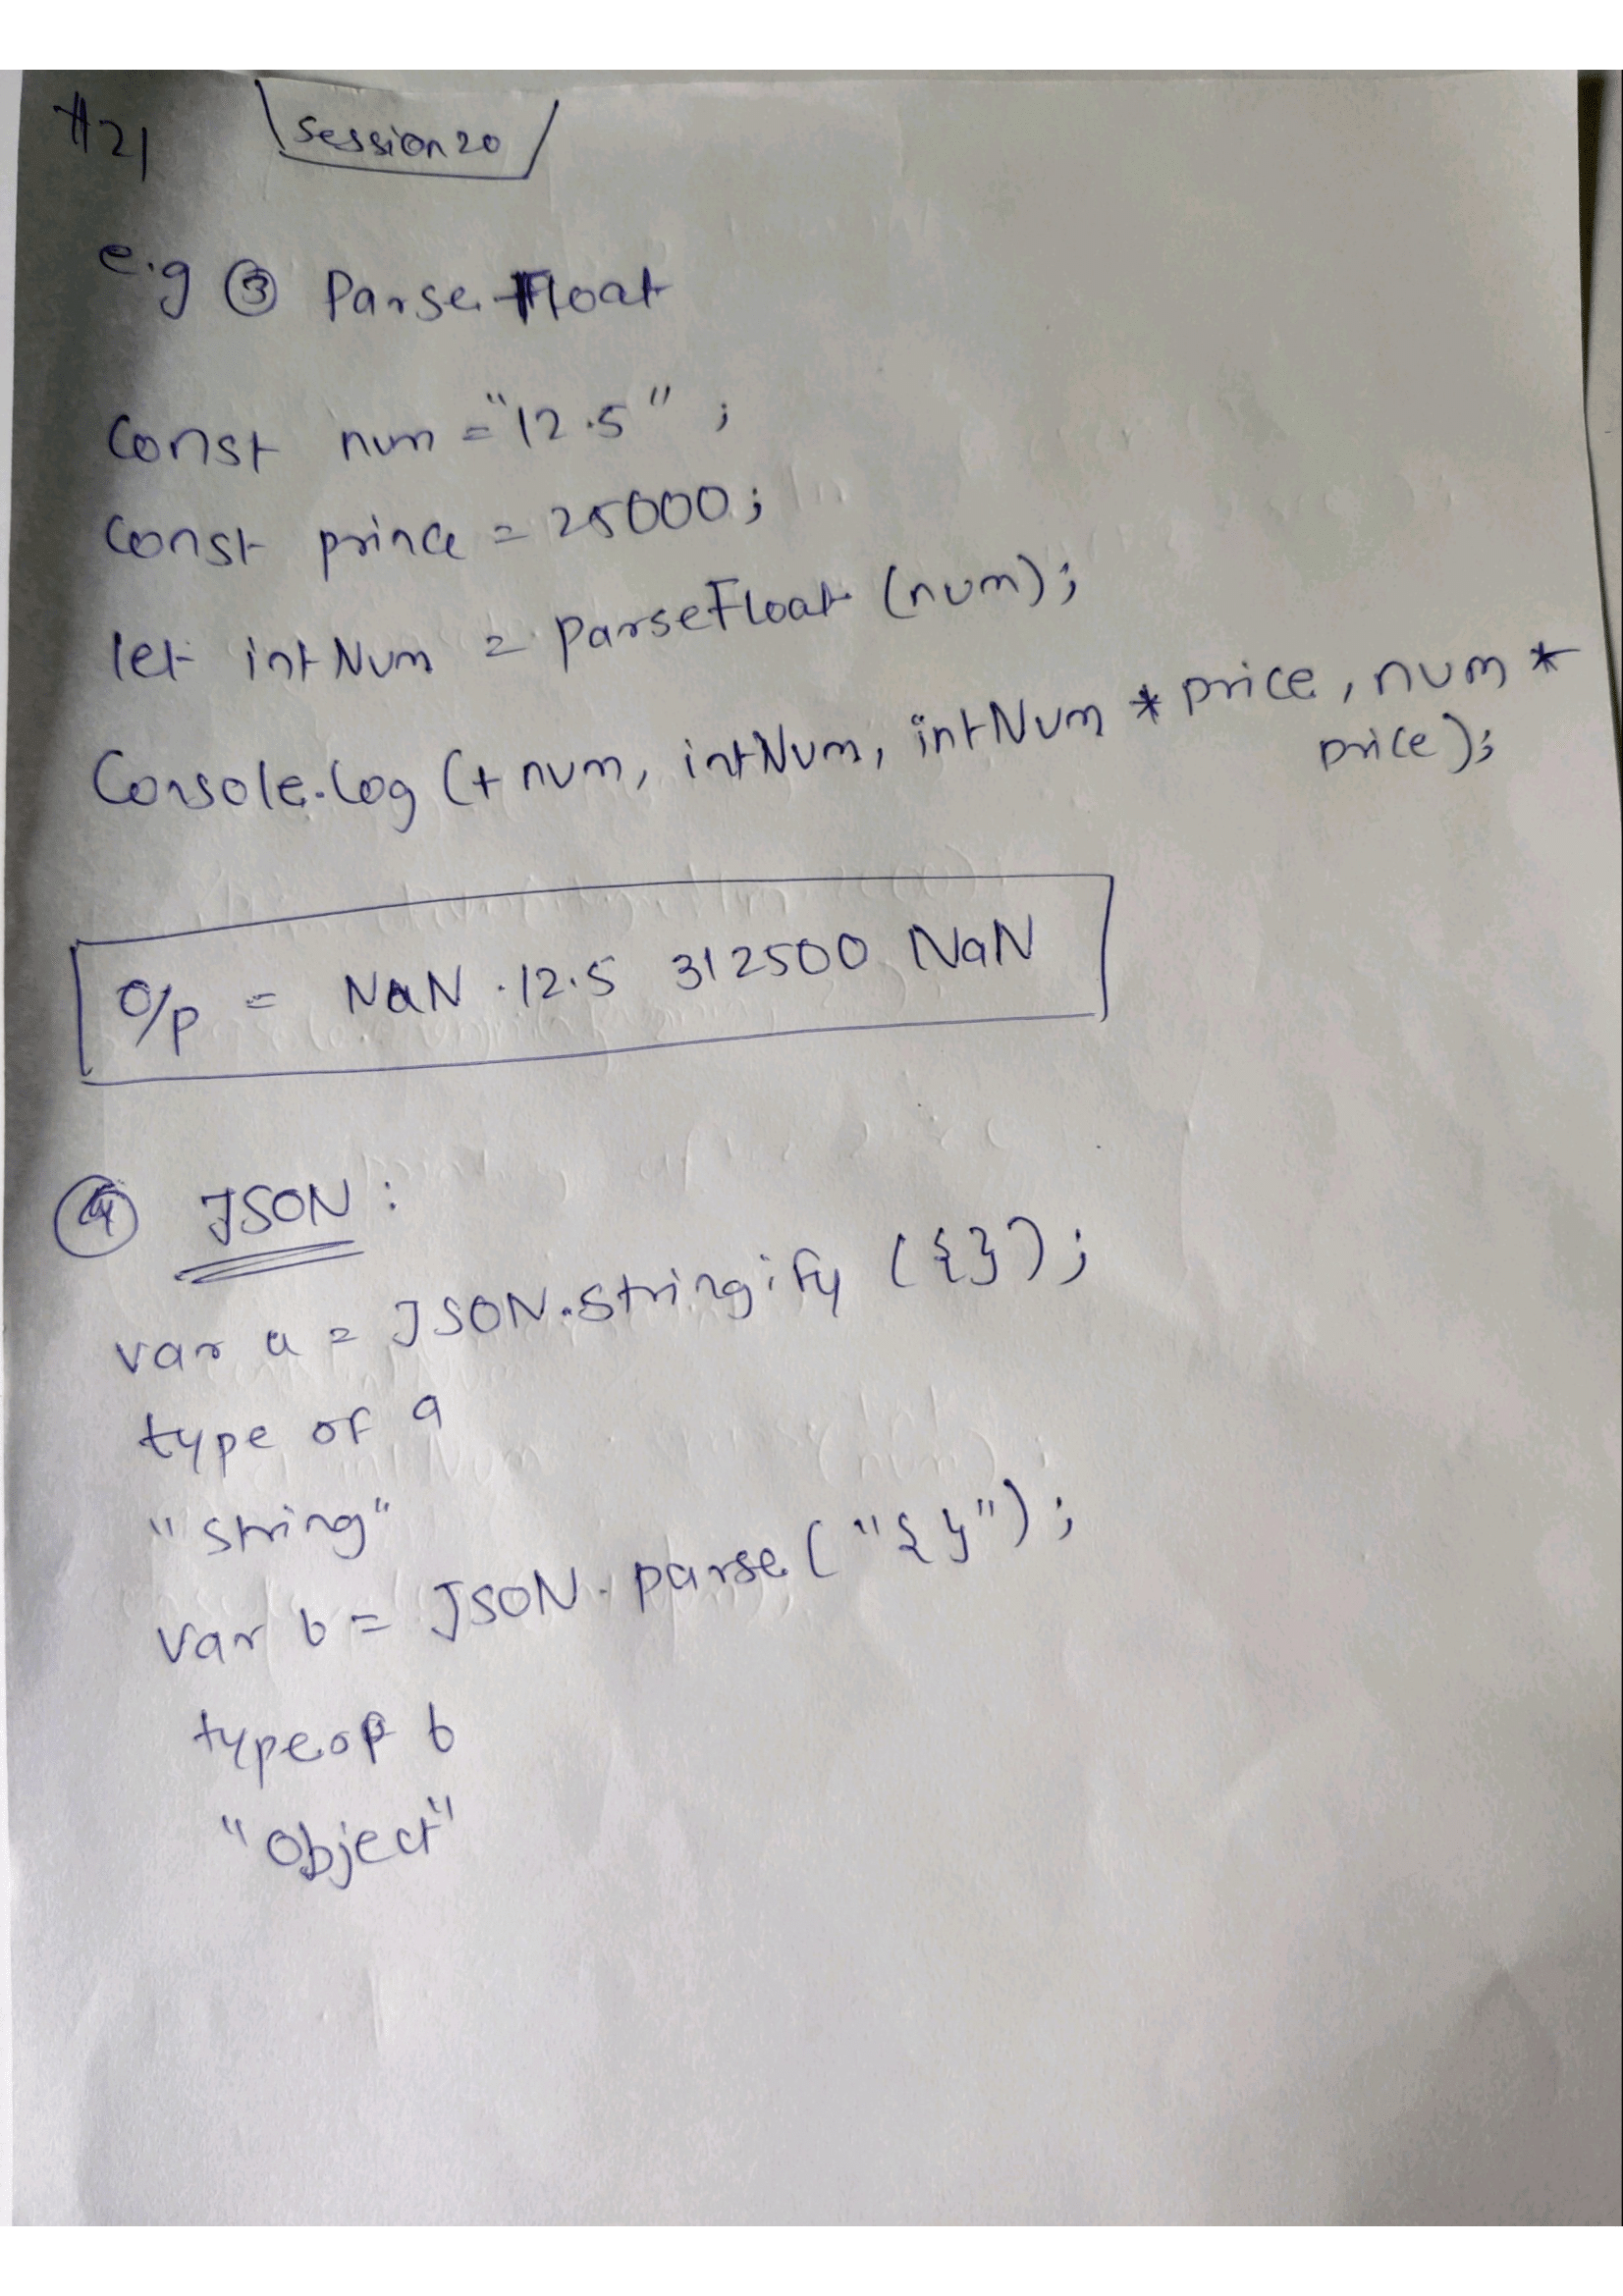 #21 Session 20
e.g ③ ParseFloat
Const num = "12.5" ;
Const prince = 25000;
let intNum = parseFloat (num);
Console.log (+ num, intNum, intNum * price, num *
price);
O/p = NaN 12.5 312500 NaN
④ JSON :
var a = JSON.stringify ({});
type of a
"String"
var b = JSON.parse ("{}");
typeof b
"Object"